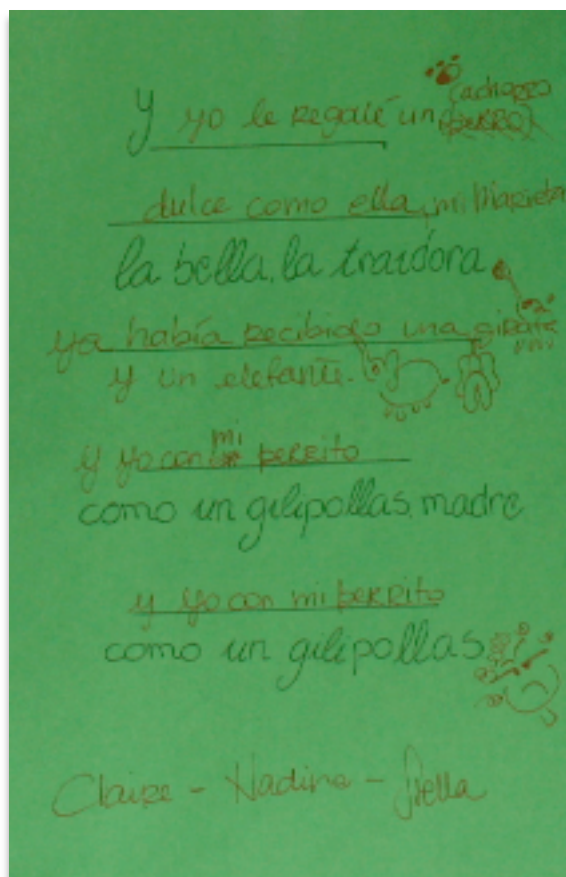 Y yo le regalé un cachorro
dulce como ella, mi Marieta
la bella, la traidora
ya había recibido una girafa
y un elefante.
y yo con mi perrito
como un gilipollas, madre
y yo con mi perrito
como un gilipollas.
Claire - Nadine - Stella